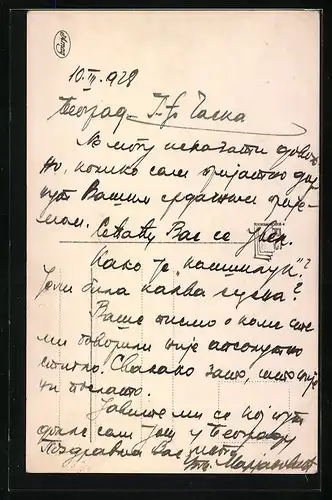 10.III.928
Београд
Не могу исказати довољ
но, колико сам пријатно дир
нут Вашим срдачним прије
мом. Сећаћу Вас се увек.
Како је „кашиклук"?
Јели била каква гуска?
Ваше писмо о коме сте
ми говорили није апсолутно
стигло. Свакако зато, што није
ни послато.
Јавите ми се који пут
докле сам још у Београду
Поздравља Вас